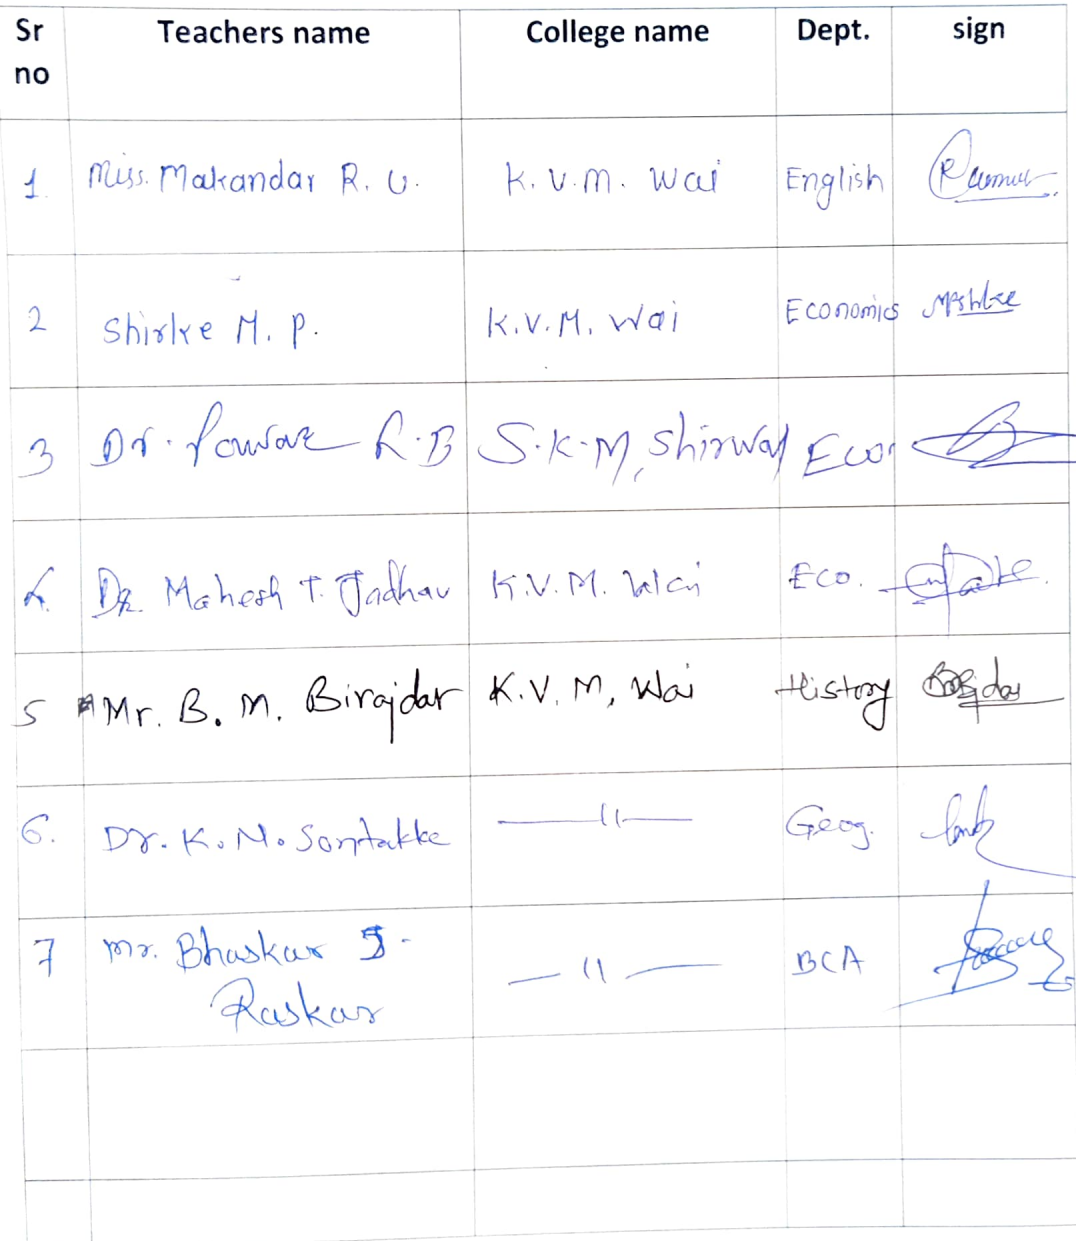 Sr no Teachers name College name Dept. sign
1. Miss. Makandar R. U. K. V. M. Wai English
2 Shirke M. P. K.V.M. Wai Economics
3 Dr. Pawar R.B S.K.M, Shirwal Eco.
4. Dr. Mahesh T. Jadhav K.V.M. Wai Eco.
5 Mr. B. M. Birajdar K.V.M, Wai History
6. Dr. K. N. Sontakke —〃— Geog.
7 Mr. Bhaskar S. —〃— BCA
Raskar